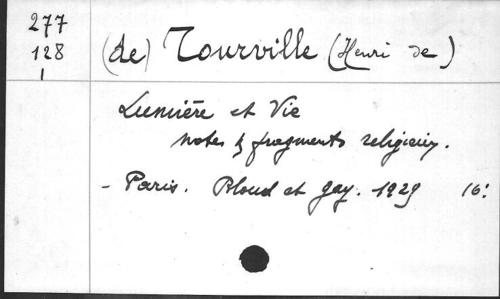 277
128
1
(de) Tourville (Henri de)
Lumière et Vie
notes & fragments religieux.
- Paris. Bloud et Gay. 1929 16: